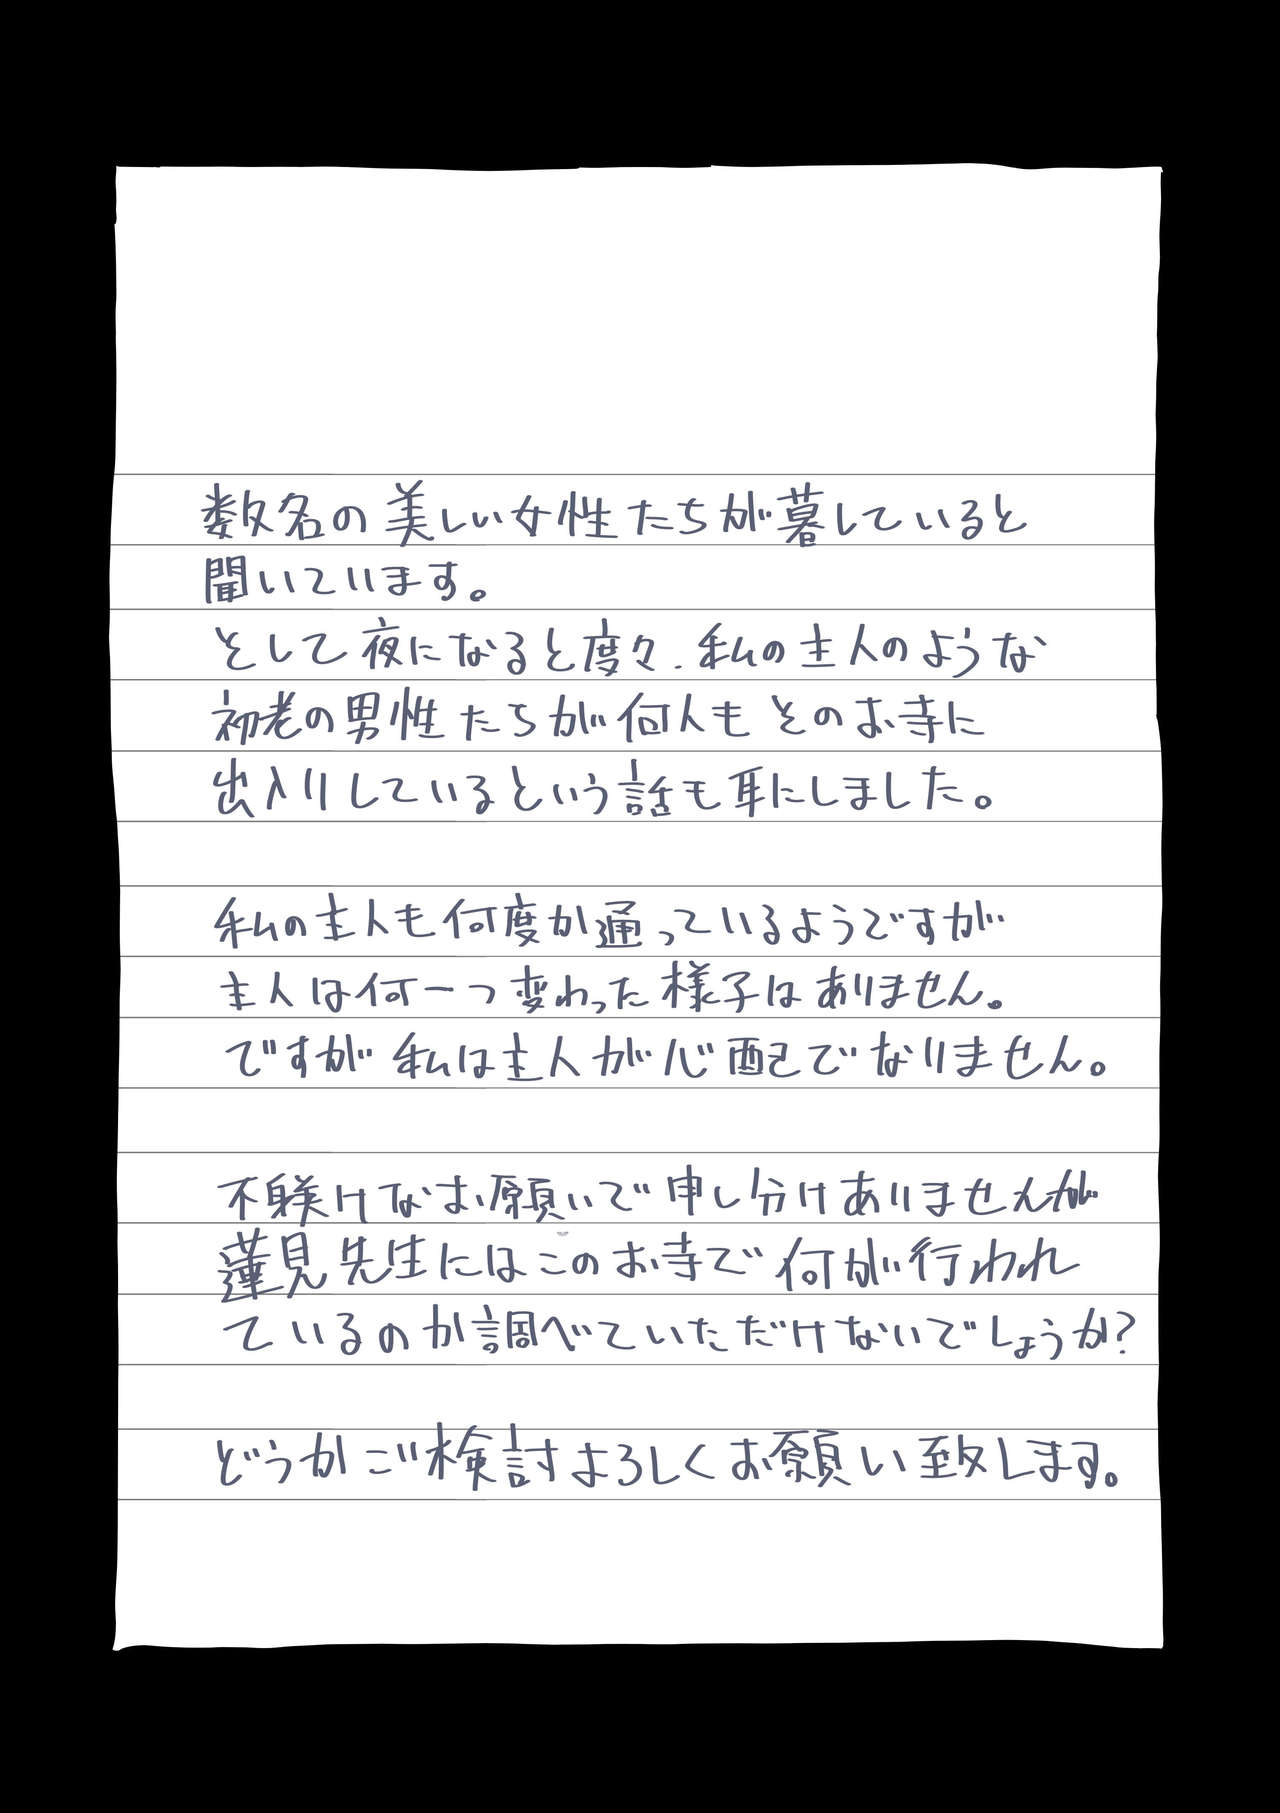 数名の美しい女性たちが暮していると
聞いています。
そして夜になると度々、私の主人のような
初老の男性たちが何人もそのお寺に
出入りしているという話も耳にしました。
私の主人も何度か通っているようですが
主人は何一つ変わった様子はありません。
ですが私は主人が心配でなりません。
不躾けなお願いで申し分けありませんが
蓮見先生にはこのお寺で何が行われ
ているのか調べていただけないでしょうか?
どうかご検討よろしくお願い致します。